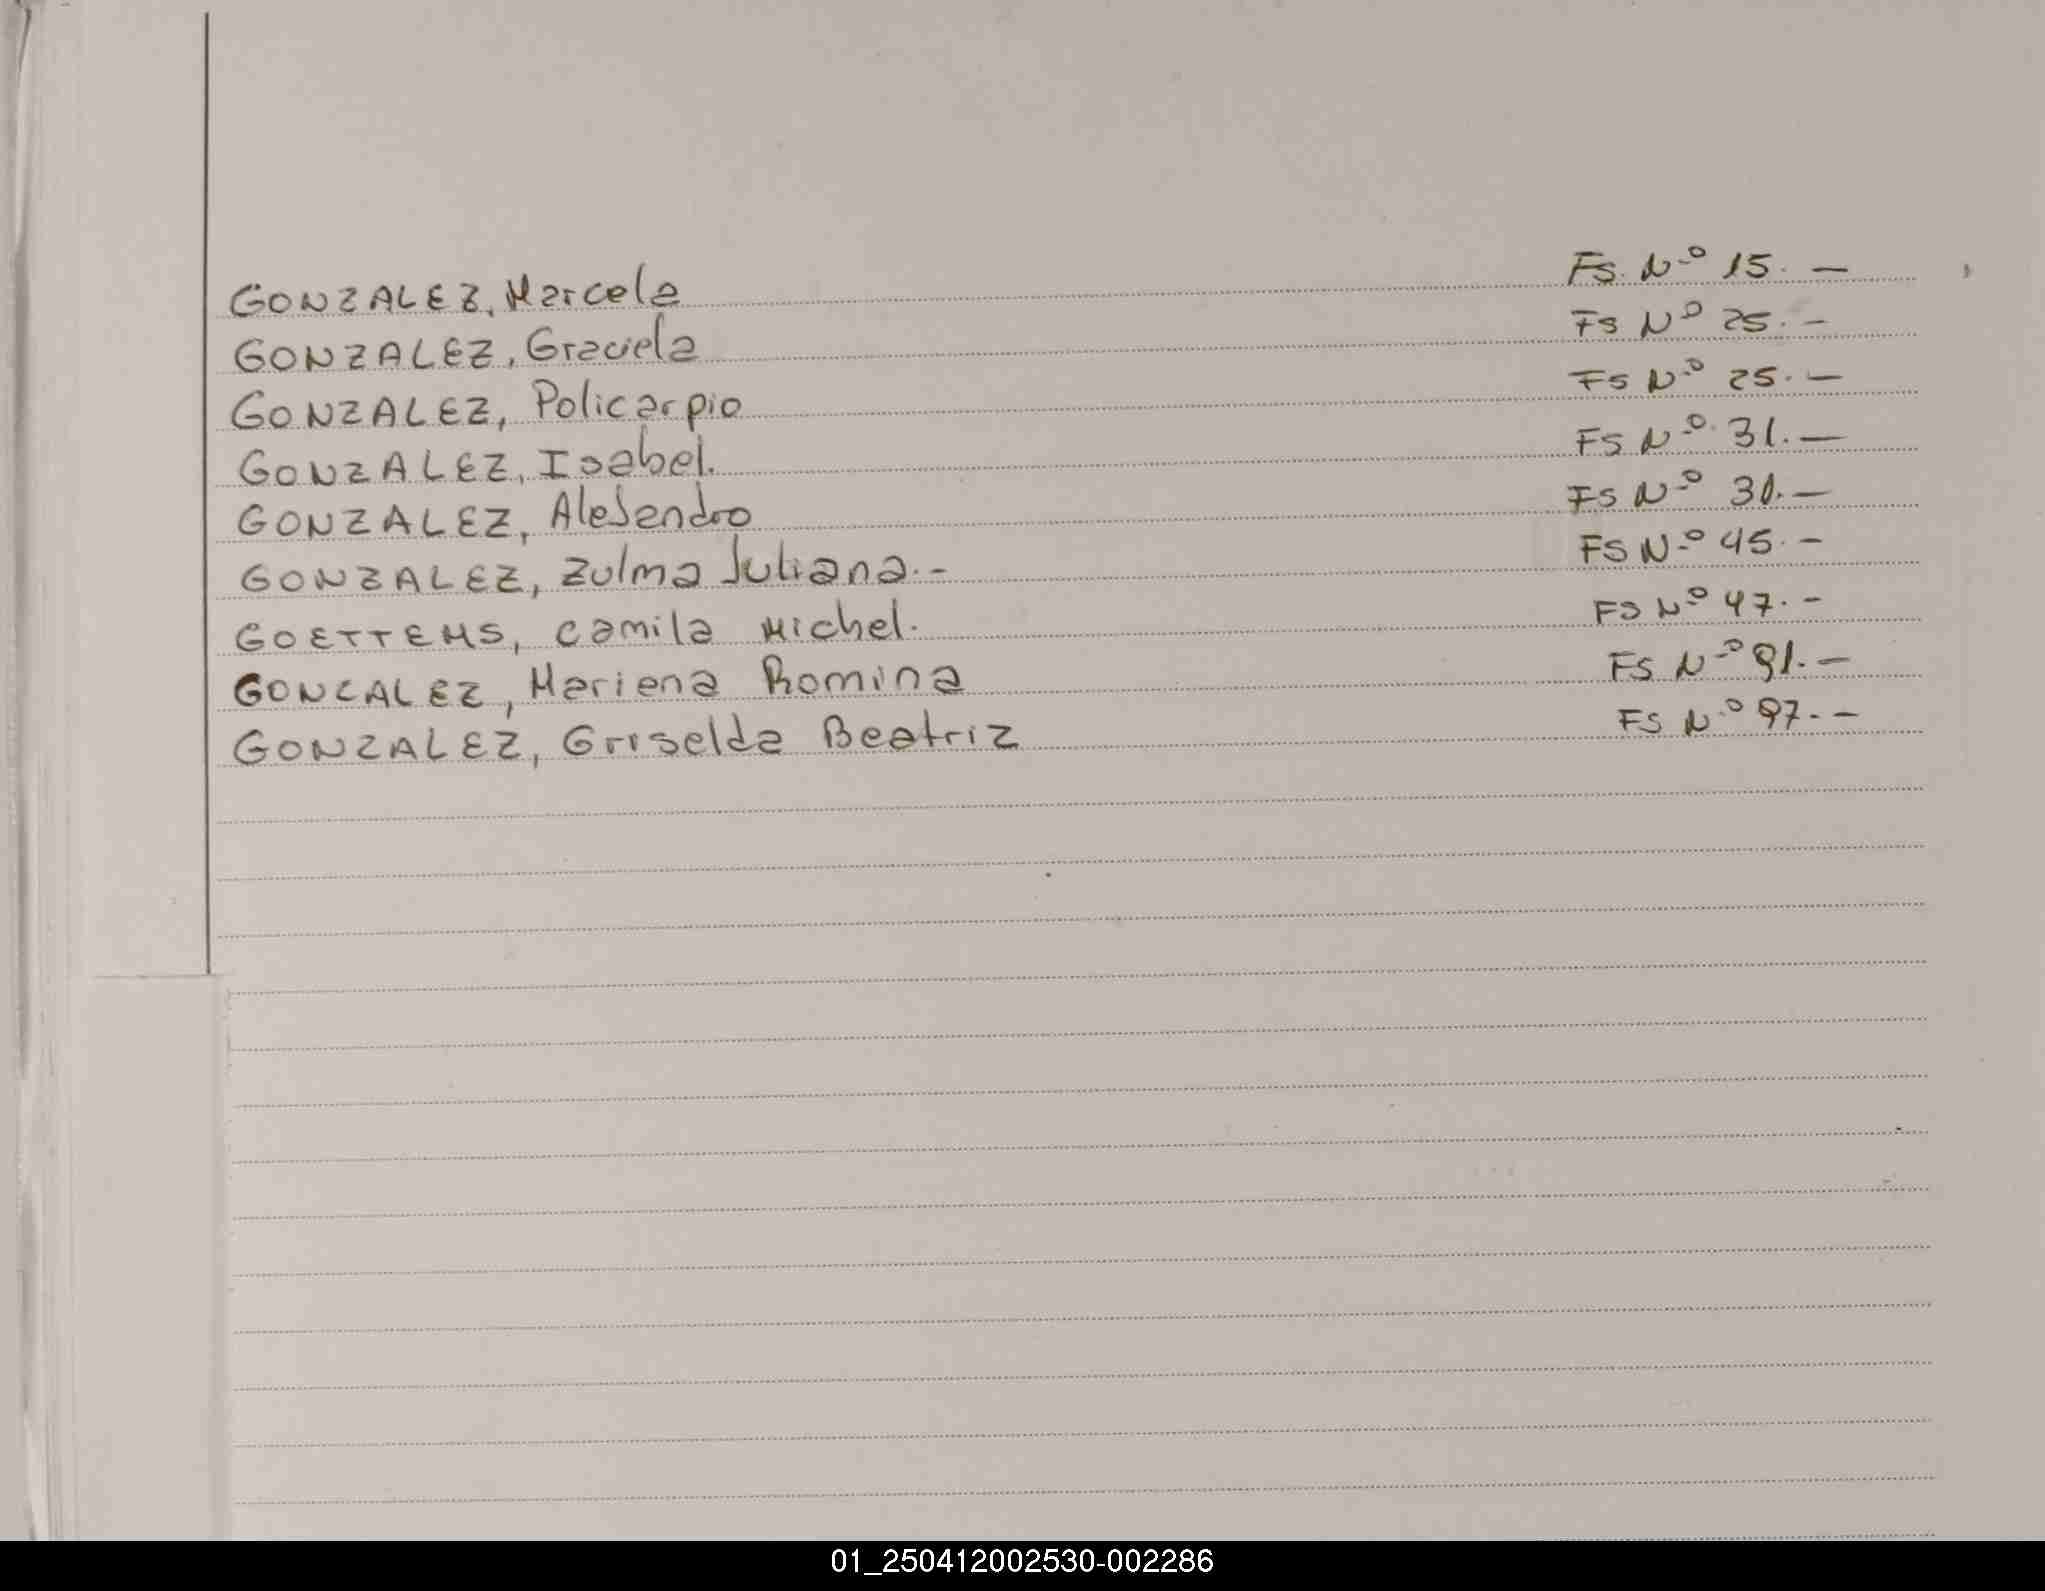 GONZALEZ, Marcela Fs. Nº 15. —
GONZALEZ, Graciela Fs Nº 25. -
GONZALEZ, Policarpio Fs Nº 25. —
GONZALEZ, Isabel. Fs Nº 31. —
GONZALEZ, Alejandro Fs Nº 31. —
GONZALEZ, Zulma Juliana. - Fs Nº 45. -
GOETTEMS, Camila Michel. Fs Nº 47. -
GONCALEZ, Mariana Romina Fs Nº 91. —
GONZALEZ, Griselda Beatriz Fs Nº 97. -
01_250412002530-002286